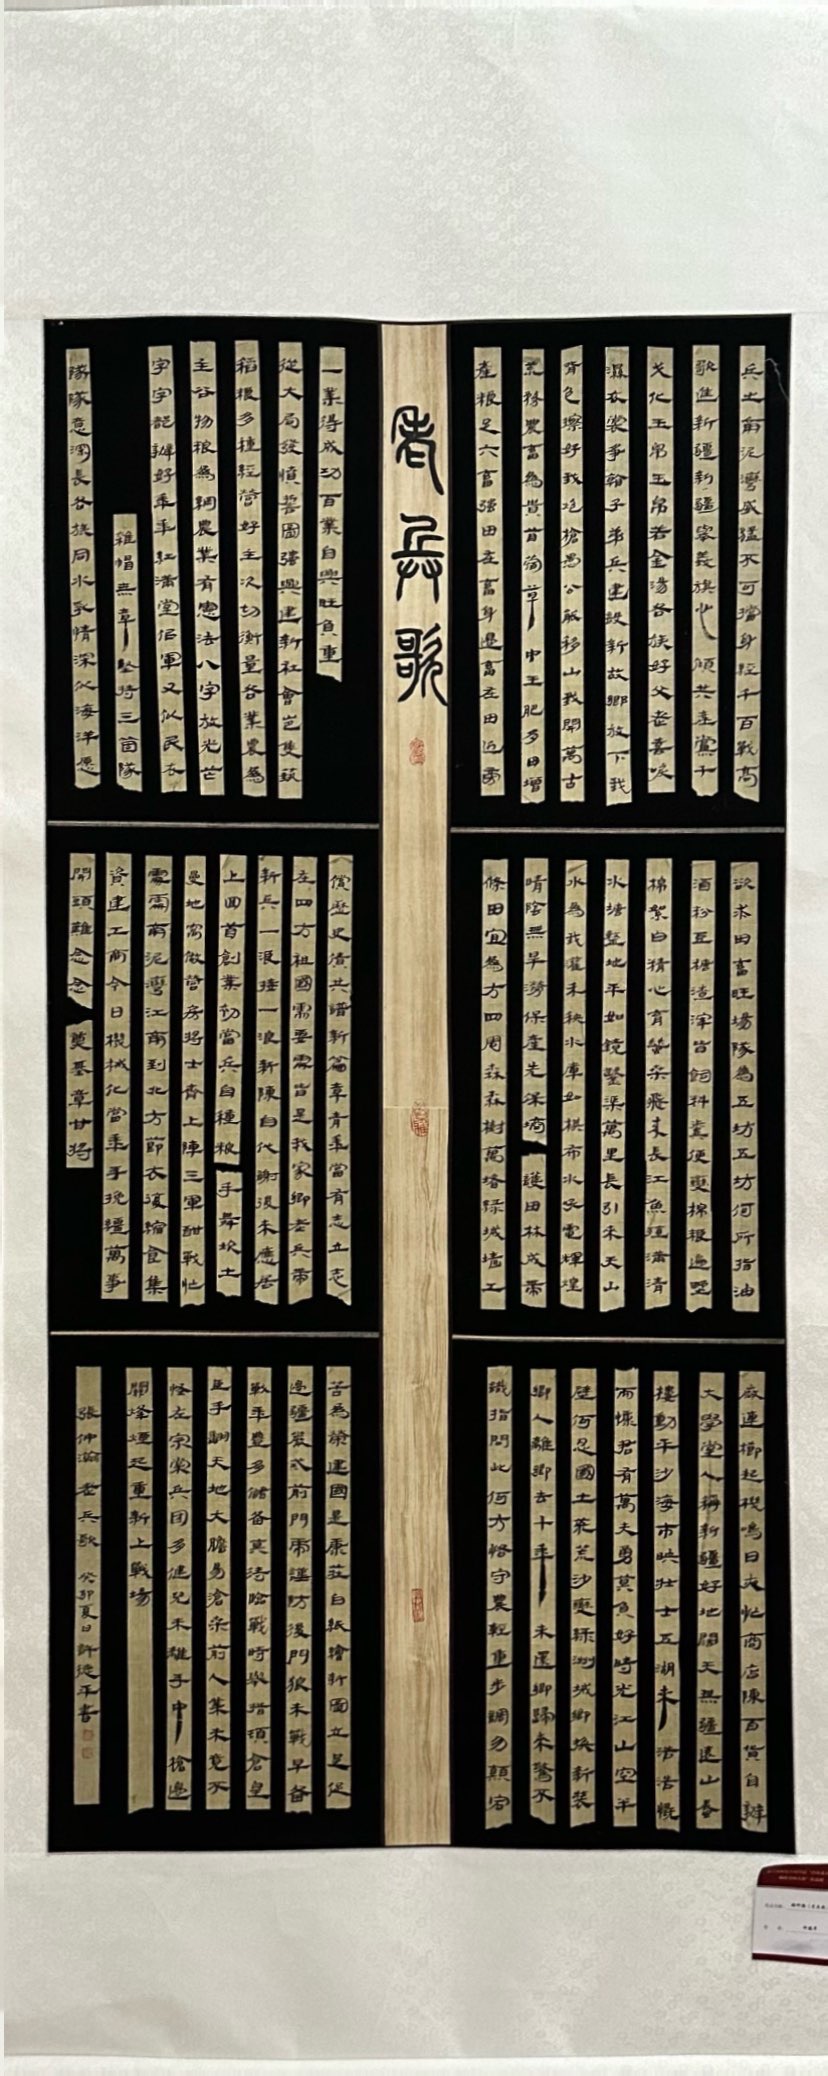 老兵歌
兵出南泥灣威猛不可擋身經千百戰高
歌進新疆新疆舉義旗心傾共產黨干
戈化玉帛玉帛若金湯各族好父老喜淚
濕衣裳爭翰子弟兵建設新故鄉放下我
背包擦好我炮槍愚公能移山我開萬古
荒務農畜為貴苜蓿草中王肥多田增
產糧足六畜強田在畜身邊畜在田近旁
欲求田畜旺場隊為五坊五坊何所指油
酒粉豆糖渣滓皆飼料糞便變棉糧邊墅
棉絮白精心育蠶朵飛來長江魚殖滿清
水塘整地平如鏡墾渠萬里長引來天山
水為我灌禾秧水庫如棋布水電輝煌
晴陰無旱澇保產先保墒護田林成帶
條田宜為方四周森森樹萬堵綠城墻工
廠連櫛起機鳴日夜忙商店陳百貨自辦
大學堂人稱新疆好地闊天無疆遠山春
樓動平沙海市映壯士五湖來浩浩慨
而慷君有萬夫勇莫負好時光江山空半
壁何忍國土萊荒沙變綠洲城鄉換新裝
鄉人離鄉去十年未還鄉歸來驚不
識指問此何方恪守農輕重步調勿顛宕
一業得成功百業自興旺負重
從大局發憤誓圖強興建新社會豈隻筑
稻糧多種經營好主次切衡量各業農為
主谷物糧為綱農業有憲法八字放光芒
字字能辦好年年紅滿堂伍軍又似民衣
雜帽無章堅持三箇隊
隊隊意深長各族同水乳情深似海洋愿
償歷史債共譜新篇章青年當有志立志
在四方祖國需要處皆是我家鄉老兵帶
新兵一浪接一浪新陳自代謝後來應居
上回首創業初當兵自種糧手舞坎土
曼地窩做營房將士齊上陣三軍酣戰忙
處處南泥灣江南到北方節衣復縮食集
資建工商今日機械化當年手挽疆萬事
開頭難念念奠基章甘將
苦為樂建國是康莊白紙繪新圖立足促
邊疆嚴戒前門虎謹防後門狼未戰早备
戰年豐多儲备莫待臨戰時舉措頊倉皇
巨手翻天地大膽易滄桑前人業未竟不
怪左宗棠兵団多健兒未離手中槍邊
關烽煙起重新上戰場
張仲瀚老兵歌 癸卯夏日許德平書